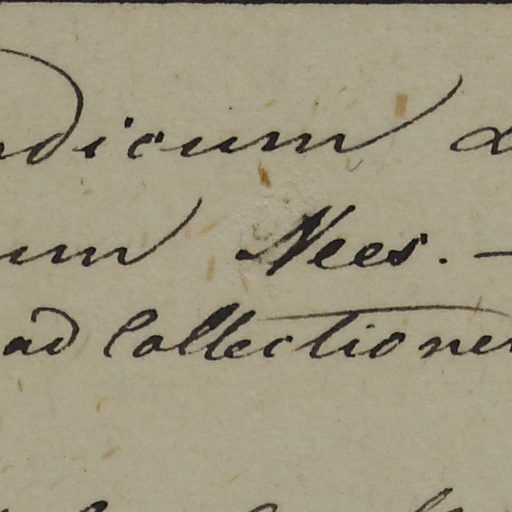 dicum
um Nees. —
ad Collectionem